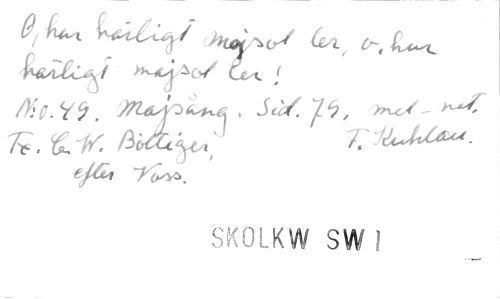 O, hur härligt majsol ler, o, hur
härligt majsol ler!
N:o. 49. Majsång. Sid. 79. mel-not.
Tx. C. W. Böttiger, F. Kuhlau.
efter Voss.
SKOLKW SW 1